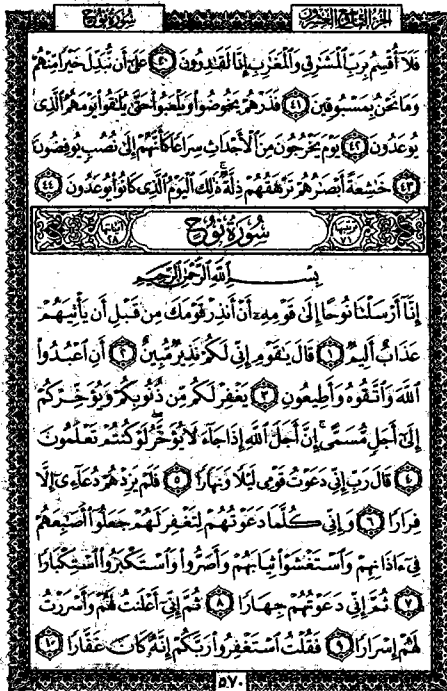 سُورَةُ نُوحٍ
الجزء التاسع والعشرون
فَلَا أُقْسِمُ بِرَبِّ الْمَشَارِقِ وَالْمَغَارِبِ إِنَّا لَقَادِرُونَ ٤٠ عَلَىٰ أَن نُّبَدِّلَ خَيْرًا مِّنْهُمْ
وَمَا نَحْنُ بِمَسْبُوقِينَ ٤١ فَذَرْهُمْ يَخُوضُوا وَيَلْعَبُوا حَتَّىٰ يُلَاقُوا يَوْمَهُمُ الَّذِي
يُوعَدُونَ ٤٢ يَوْمَ يَخْرُجُونَ مِنَ الْأَجْدَاثِ سِرَاعًا كَأَنَّهُمْ إِلَىٰ نُصُبٍ يُوفِضُونَ
٤٣ خَاشِعَةً أَبْصَارُهُمْ تَرْهَقُهُمْ ذِلَّةٌ ۚ ذَٰلِكَ الْيَوْمُ الَّذِي كَانُوا يُوعَدُونَ ٤٤
ترتيبها ٧١ سُورَةُ نُوحٍ آياتها ٢٨
بِسْمِ اللَّهِ الرَّحْمَٰنِ الرَّحِيمِ
إِنَّا أَرْسَلْنَا نُوحًا إِلَىٰ قَوْمِهِ أَنْ أَنذِرْ قَوْمَكَ مِن قَبْلِ أَن يَأْتِيَهُمْ
عَذَابٌ أَلِيمٌ ١ قَالَ يَا قَوْمِ إِنِّي لَكُمْ نَذِيرٌ مُّبِينٌ ٢ أَنِ اعْبُدُوا
اللَّهَ وَاتَّقُوهُ وَأَطِيعُونِ ٣ يَغْفِرْ لَكُم مِّن ذُنُوبِكُمْ وَيُؤَخِّرْكُمْ
إِلَىٰ أَجَلٍ مُّسَمًّى ۚ إِنَّ أَجَلَ اللَّهِ إِذَا جَاءَ لَا يُؤَخَّرُ ۖ لَوْ كُنتُمْ تَعْلَمُونَ
٤ قَالَ رَبِّ إِنِّي دَعَوْتُ قَوْمِي لَيْلًا وَنَهَارًا ٥ فَلَمْ يَزِدْهُمْ دُعَائِي إِلَّا
فِرَارًا ٦ وَإِنِّي كُلَّمَا دَعَوْتُهُمْ لِتَغْفِرَ لَهُمْ جَعَلُوا أَصَابِعَهُمْ
فِي آذَانِهِمْ وَاسْتَغْشَوْا ثِيَابَهُمْ وَأَصَرُّوا وَاسْتَكْبَرُوا اسْتِكْبَارًا
٧ ثُمَّ إِنِّي دَعَوْتُهُمْ جِهَارًا ٨ ثُمَّ إِنِّي أَعْلَنتُ لَهُمْ وَأَسْرَرْتُ
لَهُمْ إِسْرَارًا ٩ فَقُلْتُ اسْتَغْفِرُوا رَبَّكُمْ إِنَّهُ كَانَ غَفَّارًا ١٠
٥٧٠